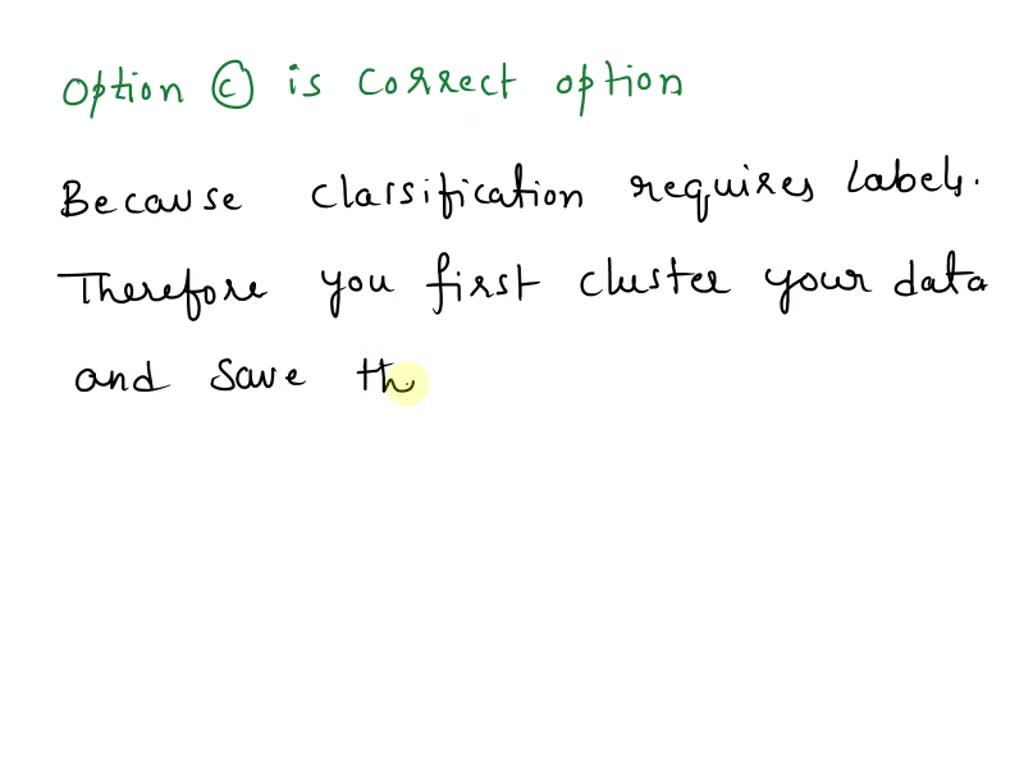 option © is correct option
Because classification requires labels.
Therefore you first cluster your data
and save th